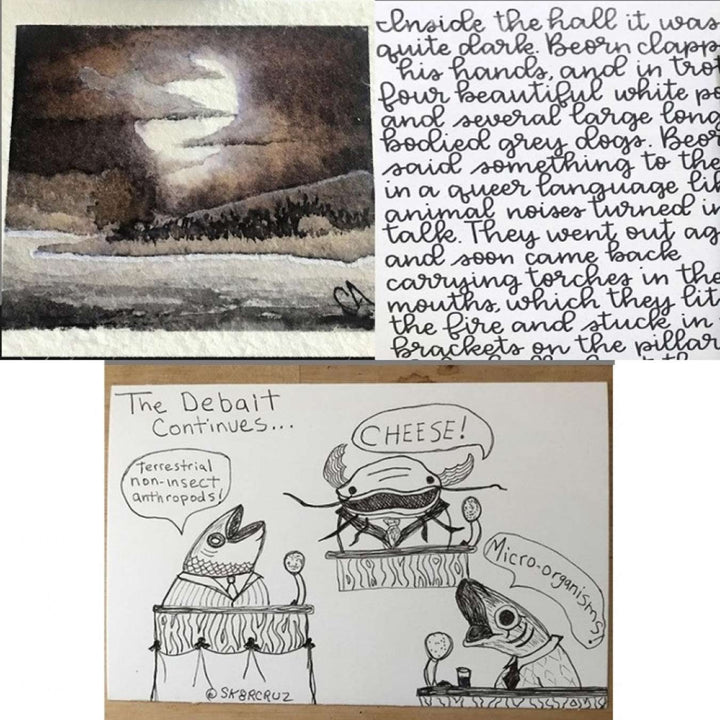 CA
Inside the hall it was
quite dark. Beorn clapp
his hands, and in trot
four beautiful white po
and several large long
bodied grey dogs. Beor
said something to the
in a queer language li
animal noises turned in
talk. They went out ag
and soon came back
carrying torches in the
mouths, which they lit
the fire and stuck in
brackets on the pillar
The Debait
Continues...
CHEESE!
Terrestrial
non-insect
anthropods!
Micro-organisms!
@SK8RCRUZ